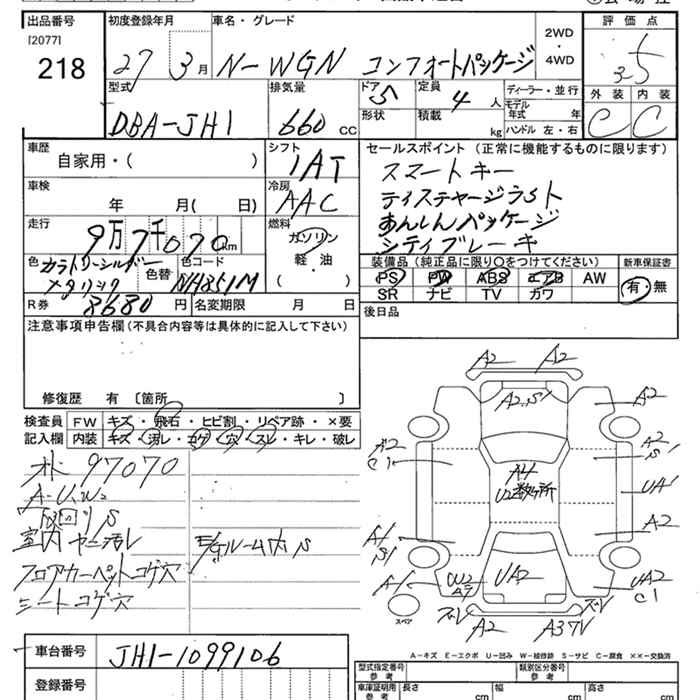 出品番号
[2077]
218
初度登録年月
27 3月
車名・グレード
N-WGN コンフォートパッケージ
2WD
・
4WD
評価点
3.5
外装 内装
C C
型式
DBA-JH1
排気量
660 CC
ドア 5
形状
定員 4人
積載 kg
ディーラー・並行
モデル年式 年
ハンドル 左・右
車歴
自家用・( )
シフト
IAT
車検
年 月( 日)
冷房
AAC
走行
9万7千070km
燃料
ガソリン
軽・油
( )
色
メタリック
色替
色コード
NH851M
R券 8680円
名変期限 月 日
セールスポイント (正常に機能するものに限ります)
スマートキー
ディスチャージライト
あんしんパッケージ
シティブレーキ
装備品 (純正品に限り○をつけてください)
PS PW ABS エアB AW
SR ナビ TV カワ
新車保証書
有・無
後日品
注意事項申告欄(不具合内容等は具体的に記入して下さい)
修復歴 有 〔箇所 〕
検査員記入欄
FW キズ・飛石・ヒビ割・リペア跡・×要
内装 キズ・汚レ・コゲ・穴・スレ・キレ・破レ
97070
A-U.W2
室内ヤニ汚レ
フロアカーペットコゲ穴
シートコゲ穴
ルーム内 S
A2 A2
A2.S1
A2
A2
C1
A2
S1
A4
U2数ヶ所
UA1
A2
A1
S1
A1
W2
UA2
UA2
C1
A2
A3
スペア
A-キズ E-エクボ U-凹み W-補修跡 S-サビ C-腐食 ××-交換済
車台番号
JH1-1099106
登録番号
型式指定番号
参考
類別区分番号
参考
車庫証明用
参考
長さ cm
幅 cm
高さ cm